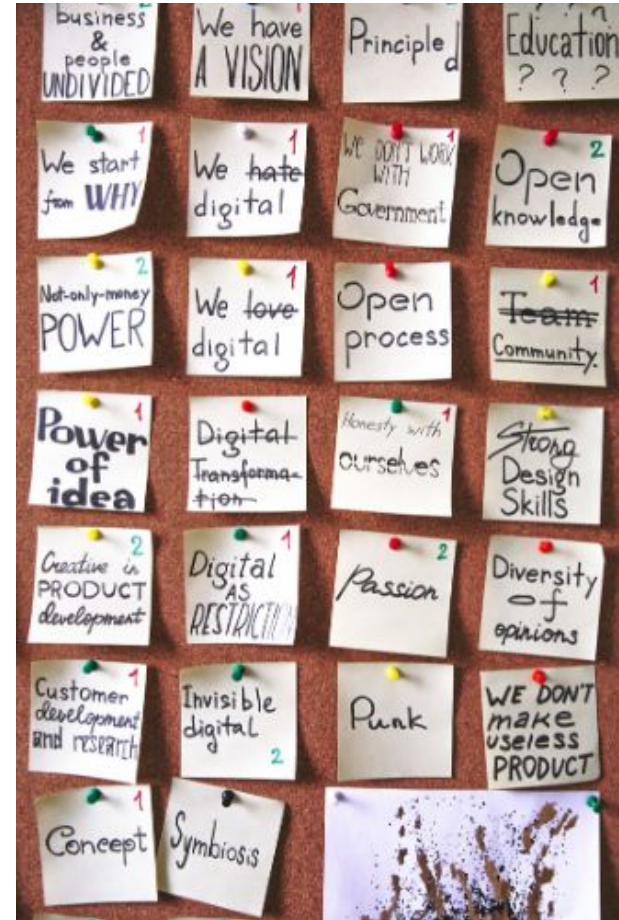 business
&
people
UNDIVIDED
2
We have
A VISION
1
Principled
Education
? ? ?
1
We start
from WHY
1
We hate
digital
1
WE DON'T WORK
WITH
Government
2
Open
knowledge
2
Not-only-money
POWER
1
We love
digital
Open
process
1
Team
Community
1
Power
of
idea
Digital
Transforma-
tion
1
Honesty with
ourselves
Strong
Design
Skills
2
Creative in
PRODUCT
development
1
Digital
AS
RESTRICTION
2
Passion
Diversity
of
opinions
1
Customer
development
and research
Invisible
digital
2
Punk
WE DON'T
make
useless
PRODUCT
1
Concept
Symbiosis